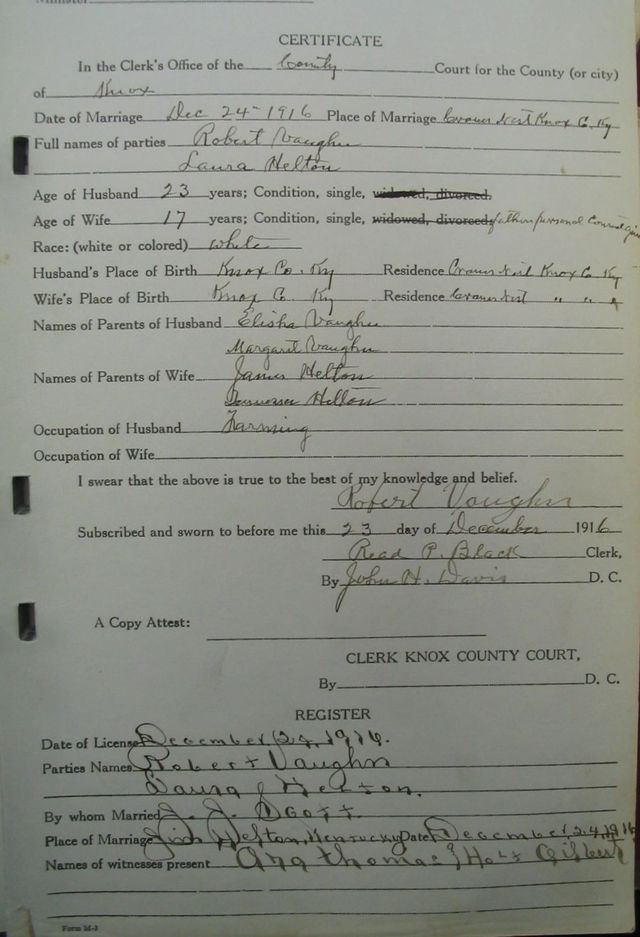 Minister
CERTIFICATE
In the Clerk's Office of the County Court for the County (or city)
of Knox
Date of Marriage Dec 24 - 1916 Place of Marriage Knox Co. Ky
Full names of parties Robert Vaughn
Laura Helton
Age of Husband 23 years; Condition, single, widowed, divorced.
Age of Wife 17 years; Condition, single, widowed, divorced, father personal
Race: (white or colored) white
Husband's Place of Birth Knox Co. Ky Residence Knox Co Ky
Wife's Place of Birth Knox Co. Ky Residence " "
Names of Parents of Husband Elisha Vaughn
Margaret Vaughn
Names of Parents of Wife James Helton
Helton
Occupation of Husband Farming
Occupation of Wife
I swear that the above is true to the best of my knowledge and belief.
Robert Vaughn
Subscribed and sworn to before me this 23 day of December 1916
Read P. Black Clerk,
By John H. Davis D. C.
A Copy Attest:
CLERK KNOX COUNTY COURT,
By D. C.
REGISTER
Date of License December, 24, 1916.
Parties Names Robert Vaughn
Laura Helton.
By whom Married J. J. Scott.
Place of Marriage Jim Helton, Kentucky Date December, 24, 1916
Names of witnesses present Ara Thomas & Holt Gilbert
Form M-3